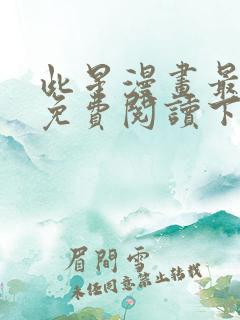 些星漫畫最
免費閱讀下
眉間雪
未經同意禁止轉載